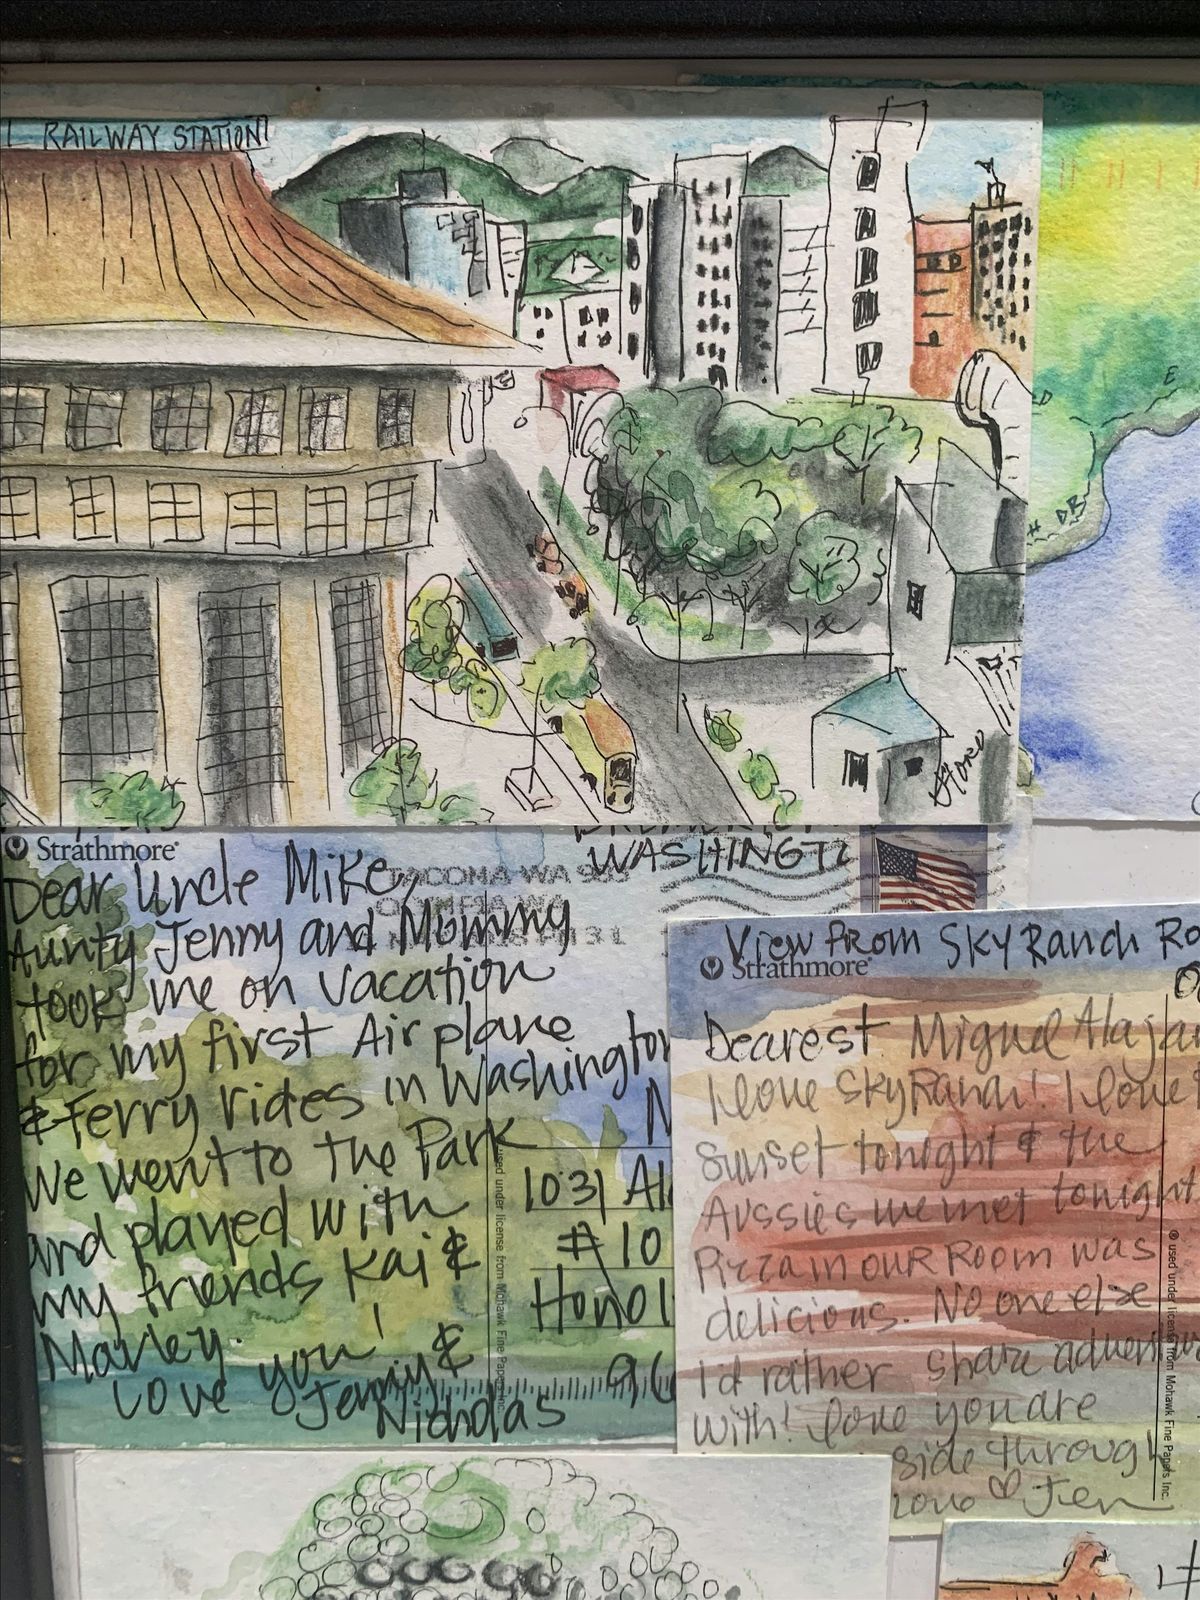 L RAILWAY STATION
Strathmore
WASHINGT
TACOMA WA
OLYMPIA WA
Dear Uncle Mike,
Aunty Jenny and Mommy
took me on vacation
for my first Airplane
& Ferry rides in Washington
We went to the Park
and played with
my friends Kai &
Marley.
Love you!
Jenny &
Nicholas
used under license from Mohawk Fine Papers Inc.
1031 Al
#10
Honol
96
View from SkyRanch Ro
Strathmore
Dearest Miguel
I love SkyRanch! I love
sunset tonight & the
Aussies we met tonight
Pizza in our Room was
delicious. No one else
I'd rather share adventu
with! love you are
side through
love ♡ Jen
® used under license from Mohawk Fine Papers Inc.